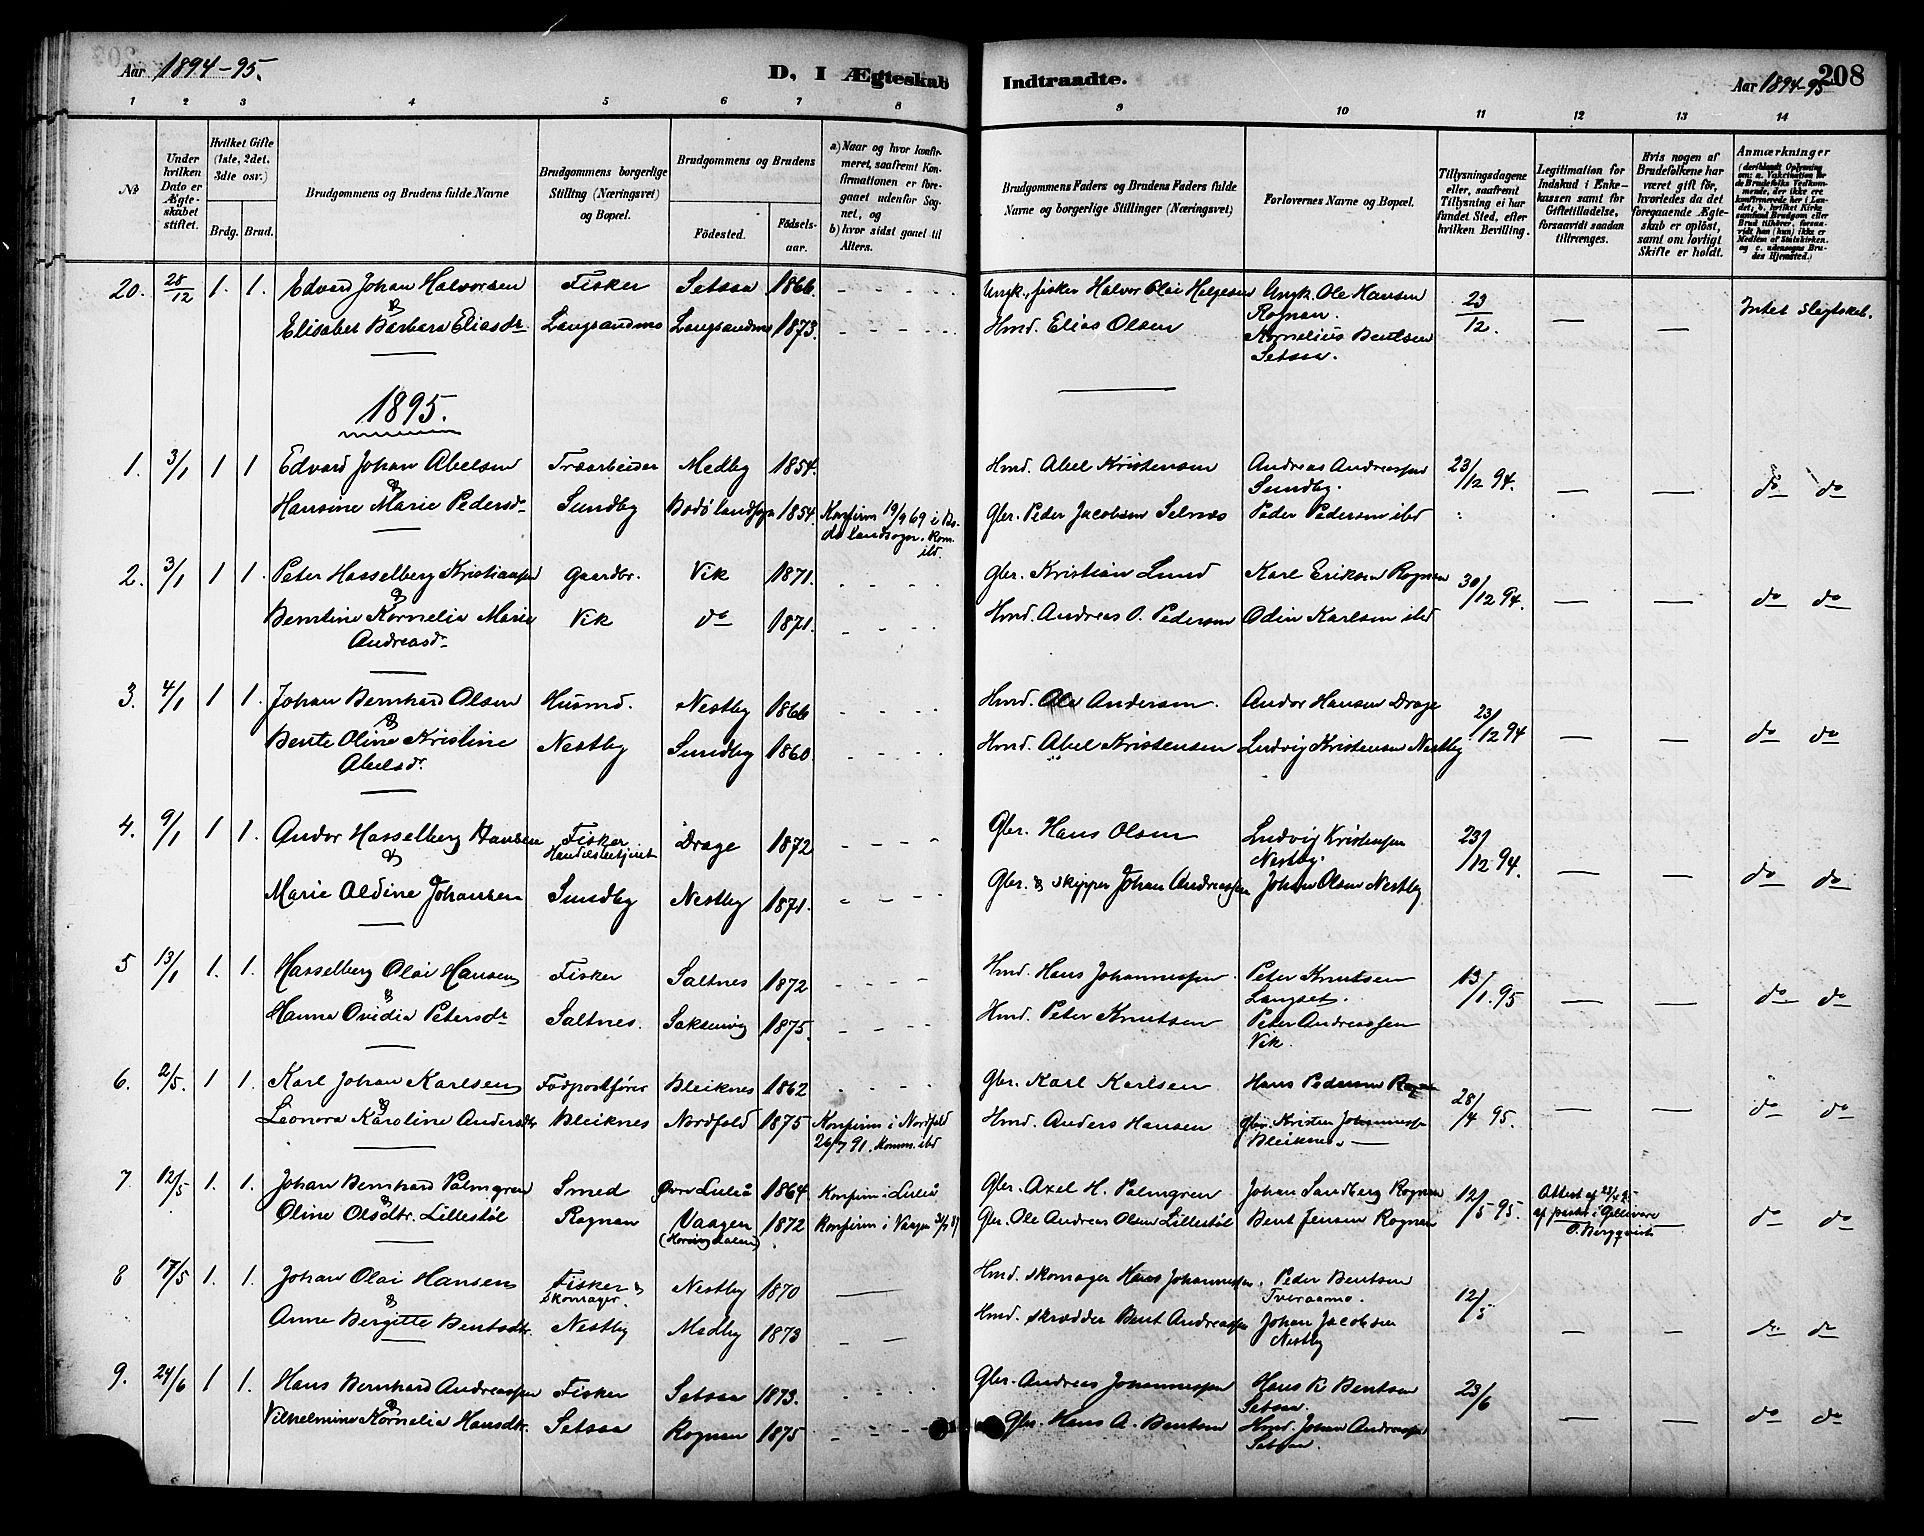 Aar 1894-95.
D, I Ægteskab
Indtraadte.
Aar 1894-95
208
1 2 3 4 5 6 7 8 9 10 11 12 13 14
No
Under hvilken Dato er Ægteskabet stiftet.
Hvilket Gifte (1ste, 2det, 3die osv.)
Brdg. Brud.
Brudgommens og Brudens fulde Navne
Brudgommens borgerlige Stilling (Næringsvei) og Bopæl.
Brudgommens og Brudens
Födested.
Födselsaar.
a) Naar og hvor konfirmeret, saafremt Konfirmationen er foregaaet udenfor Sognet, og
b) hvor sidst gaaet til Alters.
Brudgommens Faders og Brudens Faders fulde Navne og borgerlige Stillinger (Næringsvei)
Forlovernes Navne og Bopæl.
Tillysningsdagene eller, saafremt Tillysning ei har fundet Sted, efter hvilken Bevilling.
Legitimation for Indskud i Enkekassen samt for Giftetilladelse, forsaavidt saadan tiltrænges.
Hvis nogen af Brudefolkene har været gift för, hvorledes da det foregaaende Ægteskab er oplöst, samt om lovligt Skifte er holdt.
Anmærkninger
20. 28/12 1. 1. Edvard Johan Halvorsen Fisker Setsaa 1866. Ungk., fisker Halvor Olai Helgesen Ungk. Ole Hansen Rognan. 23/12. Intet Slegtskab.
& Elisabet Barbara Eliasdr Langsandmo Langsandmo 1873. Hmd. Elias Olsen Kornelius Bentsen Setsaa.
1895.
1. 3/1 1 1 Edvard Johan Abelsen Træarbeider Medby 1854. Hmd. Abel Kristensen Andreas Andreassen Sundby. 23/12 94. do do
& Hansine Marie Pedersdr Sundby Bodö landsogn 1854. Konfirm 19/9 69 i Bodö landsogn. Kom. ibd. Gbr. Peder Jacobsen Selnæs Peder Pedersen ibd
2. 3/1 1 1. Peter Hasselberg Kristiansen Gaardbr. Vik 1871. Gbr. Kristian Lund Karl Eriksen Rognan 30/12 94. do do
& Berntine Kornelia Marie Andreasdr Vik do 1871. Hmd. Andreas O. Pedersen Odin Karlsen ibd
3. 4/1 1 1. Johan Bernhard Olsen Husmd. Nestby 1866 Hmd. Ole Andersen. Andor Hansen Drage 23/12 94 do do
& Bente Oline Kristine Abelsdr. Nestby Sundby 1860. Hmd. Abel Kristensen Ludvig Kristensen Nestby
4. 9/1 1 1. Andor Hasselberg Hansen Fisker Handelsbetjent Drage 1872 Gbr. Hans Olsen Ludvig Kristensen Nestby. 23/12 94. do do
& Marie Aldine Johansen Sundby Nestby 1871. Gbr. & Skipper Johan Andreassen Johan Olsen Nestby
5 13/1 1. 1. Hasselberg Olai Hansen Fisker Saltnes 1872 Hmd. Hans Johannessen. Peter Knutsen Langset. 13/1. 95 do do
& Hanna Ovidia Petersdr Saltnes. Saksenvig 1875. Hmd. Peter Knutsen Peter Andreassen Vik.
6. 2/5. 1 1. Karl Johan Karlsen Fodpostförer Bleiknes 1862 Gbr. Karl Karlsen Hans Pedersen 28/4 95. do do
& Leonora Karoline Andersdtr Bleiknes Nordfold 1875 Konfirm i Nordfold 26/7 91. Komm. ibd Hmd. Anders Hansen Gbr. Kristen Johannessen Bleiknes.
7 12/5 1. 1. Johan Bernhard Palmgren Smed Övre Luleå 1864 Konfirm i Luleå Gbr. Axel H. Palmgren Johan Sandberg Rognan 12/5 95. Attest af af pastor i Gellivare O. Bergqvist do do
& Oline Olsdtr. Lillestöl Rognan Vaagen 1872 Konfirm i Vaagen Gbr. Ole Andreas Olsen Lillestöl Bent Jensen Rognan
8 17/5 1. 1. Johan Olai Hansen Fisker & skomager. Nestby 1870 Hmd. skomager Hans Johannessen. Peder Bentsen Tveraamo. 12/5 do do
& Anne Bergitte Bentsdtr. Nestby Medby 1873 Hmd. skrædder Bent Andreassen Johan Jacobsen Nestby
9. 24/6 1 1. Hans Bernhard Andreassen Fisker Setsaa 1873. Gbr. Andreas Johannessen Hans B Bentsen Setsaa. 23/6 do do
& Vilhelmine Kornelia Hansdtr. Setsaa Rognan 1875 Gbr. Hans A. Bentsen Hmd. Johan Andreassen Setsaa.